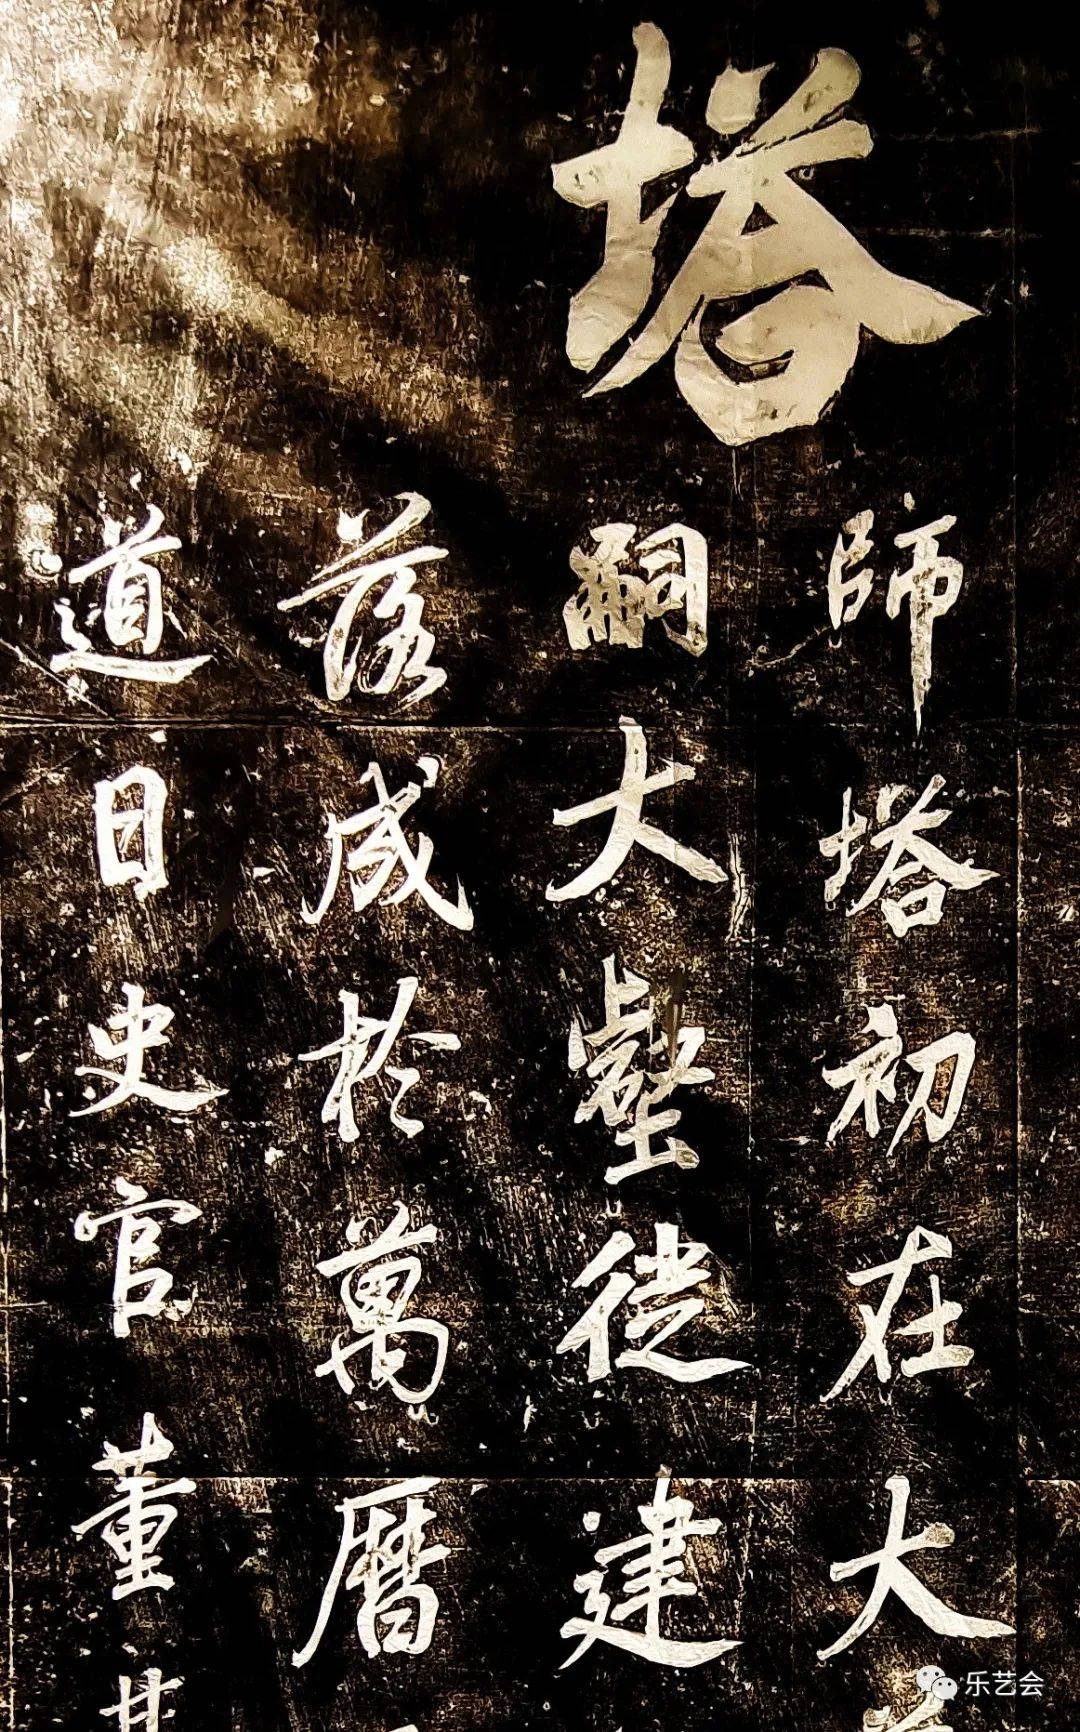 塔
師塔初在大
嗣大壑從建
落成於萬曆
道日史官董其
乐艺会